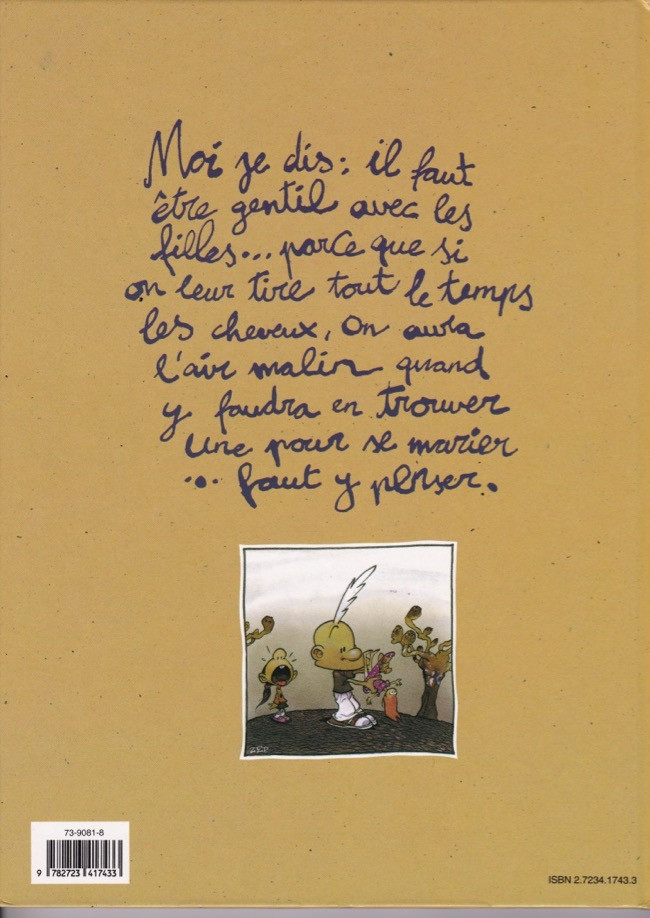 Moi je dis : il faut
être gentil avec les
filles... parce que si
on leur tire tout le temps
les cheveux, on aura
l'air malin quand
y faudra en trouver
une pour se marier
... faut y penser.
ZEP
73-9081-8
9 782723 417433
ISBN 2.7234.1743.3